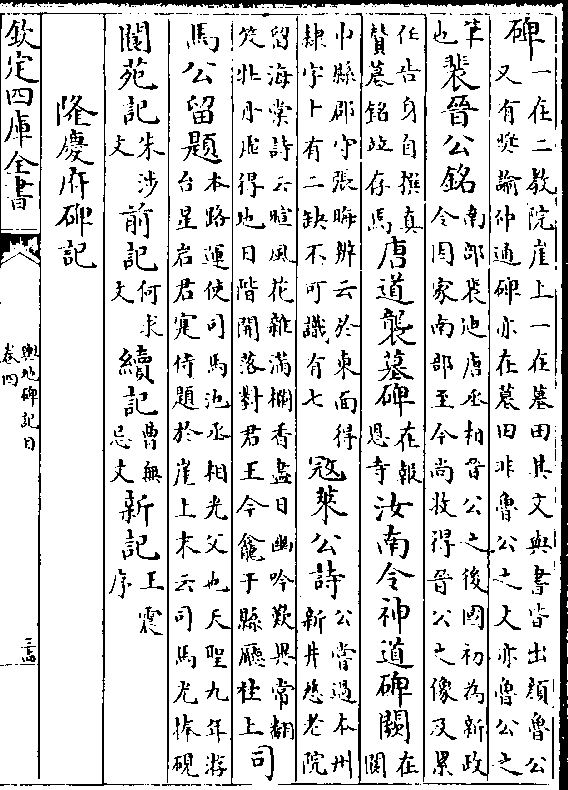 碑一在二教院崖上一在墓田其文與書皆出顔魯公
又有奬諭仲通碑亦在墓田非魯公之文亦魯公之
筆也裴晉公銘南部裴池唐丞相晉公之後國初為新政
令因家南部至今尚收得晉公之像及累
任告身自撰真
賛墓銘政存焉唐道襲墓碑在報恩寺汝南令神道碑闕在閬
中縣郡守張晦辨云於東面得
隷字十有二缺不可識有七冦萊公詩公嘗過本州
新井慈老院
留海棠詩云暄風花雜滿欄香盡日幽吟歎異常翻
笑牡丹虛得地日階開落對君王今龕于縣廳柱上司
馬公留題本路運使司馬池丞相光父也天聖九年游
台星岩君寔侍題於崖上末云司馬光捧硯
閬苑記朱涉文前記何求文續記曹無忌文新記王震序
隆慶府碑記
欽定四庫全書
輿地碑記目
卷四
三四